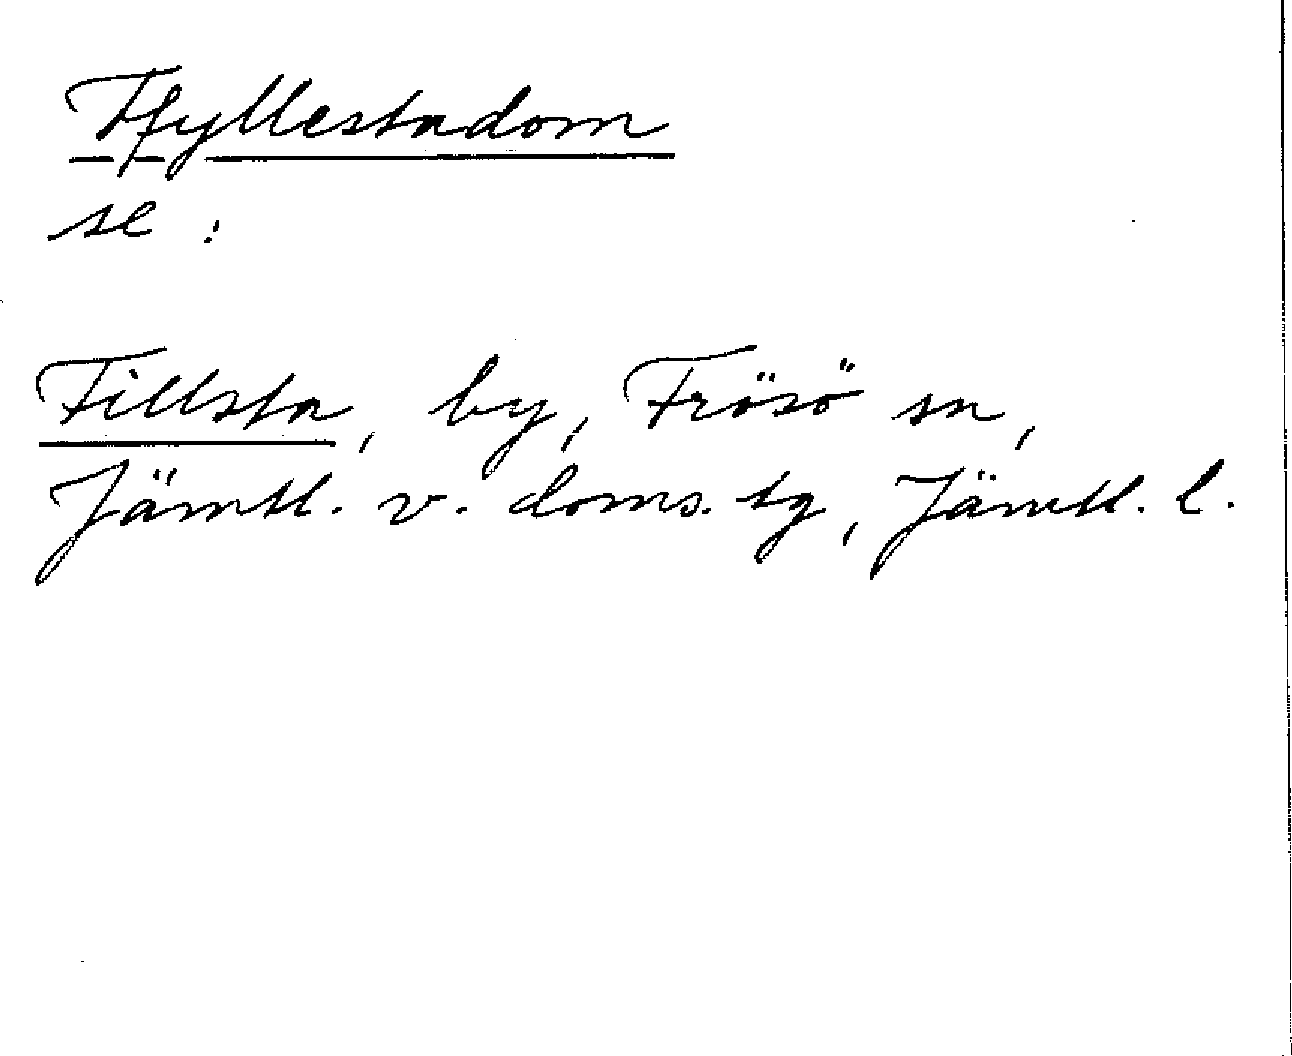 Ffyllestadom
se:
Fillsta, by, Frösö sn,
Jämtl. v. doms. tg, Jämtl. l.